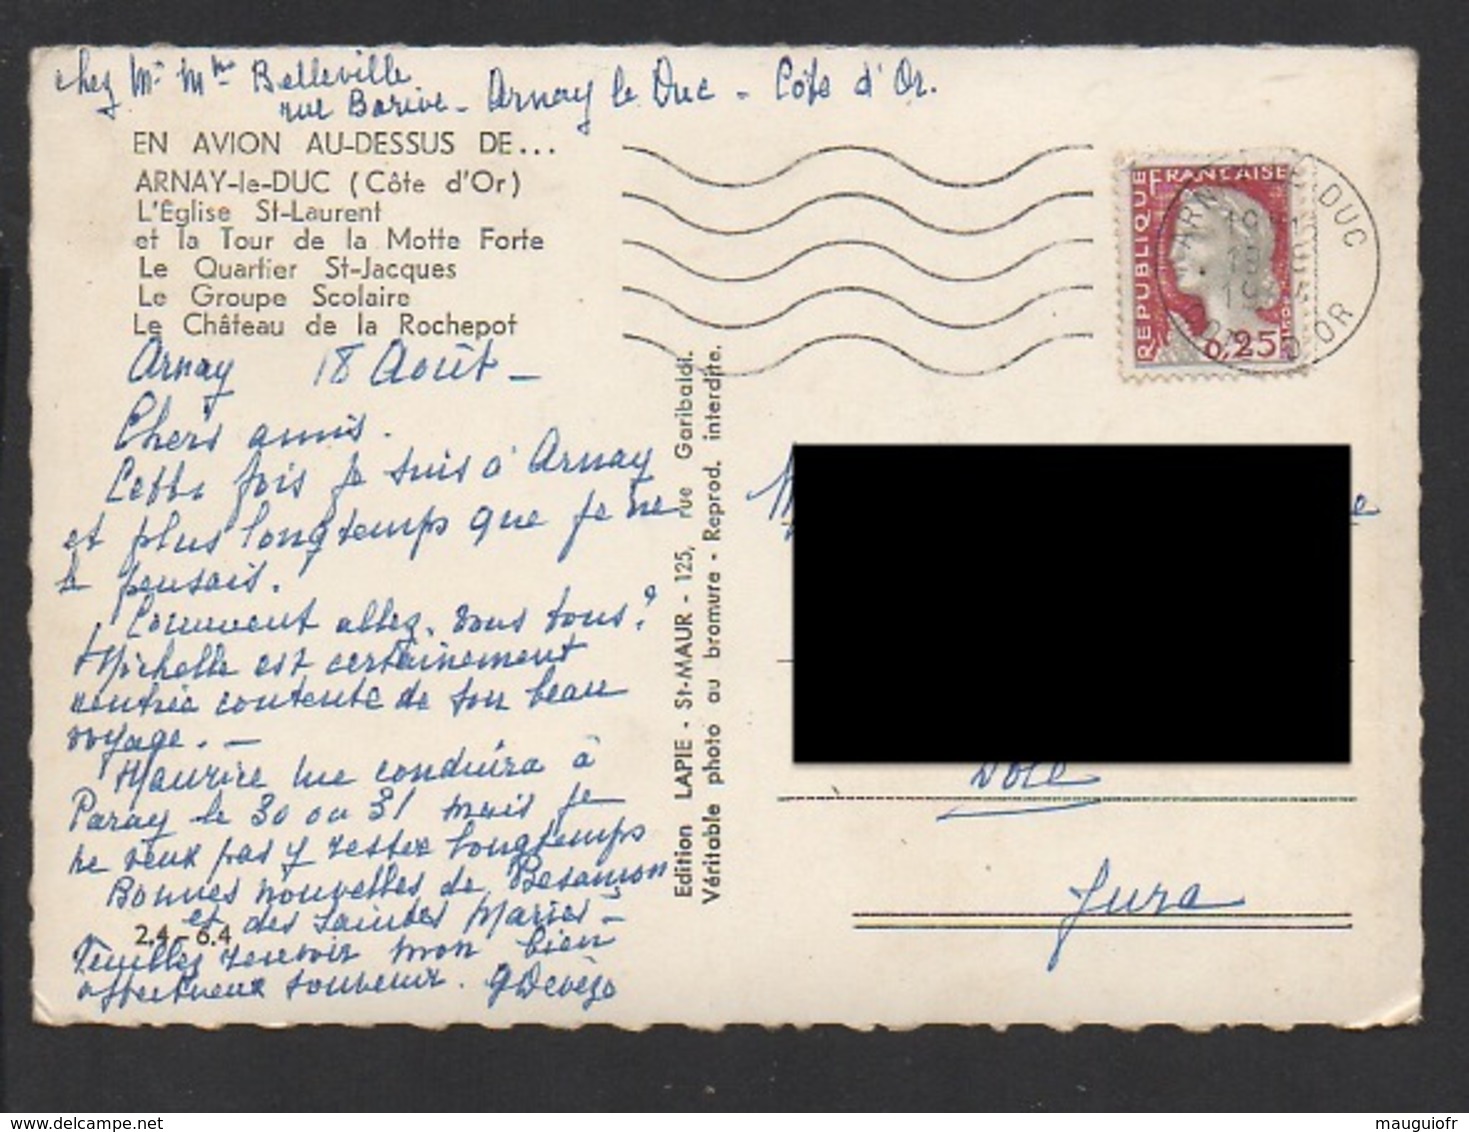 chez Mr Mme Belleville
rue Barive - Arnay le Duc - Côte d'Or.
EN AVION AU-DESSUS DE...
ARNAY-le-DUC (Côte d'Or)
L'Église St-Laurent
et la Tour de la Motte Forte
Le Quartier St-Jacques
Le Groupe Scolaire
Le Château de la Rochepot
Arnay 18 Août -
Chers amis.
Cette fois je suis à Arnay
et plus longtemps que je ne
le pensais.
Comment allez-vous tous?
Michelle est certainement
rentrée contente de son beau
voyage. -
Maurice me conduira à
Paray le 30 ou 31 mais je
ne veux pas y rester longtemps
Bonnes nouvelles de Besançon
et des Saintes Maries -
Veuillez recevoir mon bien
affectueux souvenir. G Devèze
2.4 - 6.4
Edition LAPIE - St-MAUR - 125, rue Garibaldi.
Véritable photo au bromure - Reprod. interdite.
REPUBLIQUE FRANÇAISE
0,25
ARNAY LE DUC
COTE D'OR
Dole
Jura
delcampe.net
mauguiofr